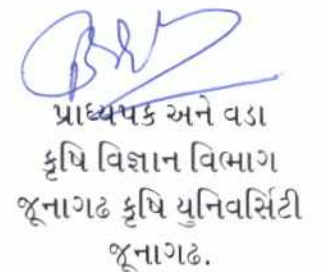 પ્રાધ્યપક અને વડા
કૃષિ વિજ્ઞાન વિભાગ
જૂનાગઢ કૃષિ યુનિવર્સિટી
જૂનાગઢ.